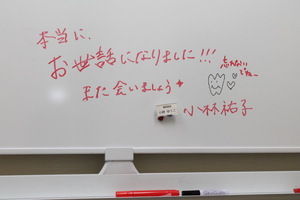 本当に、
お世話になりました!!!
また会いましょう
忘れない
でね〜
小林祐子